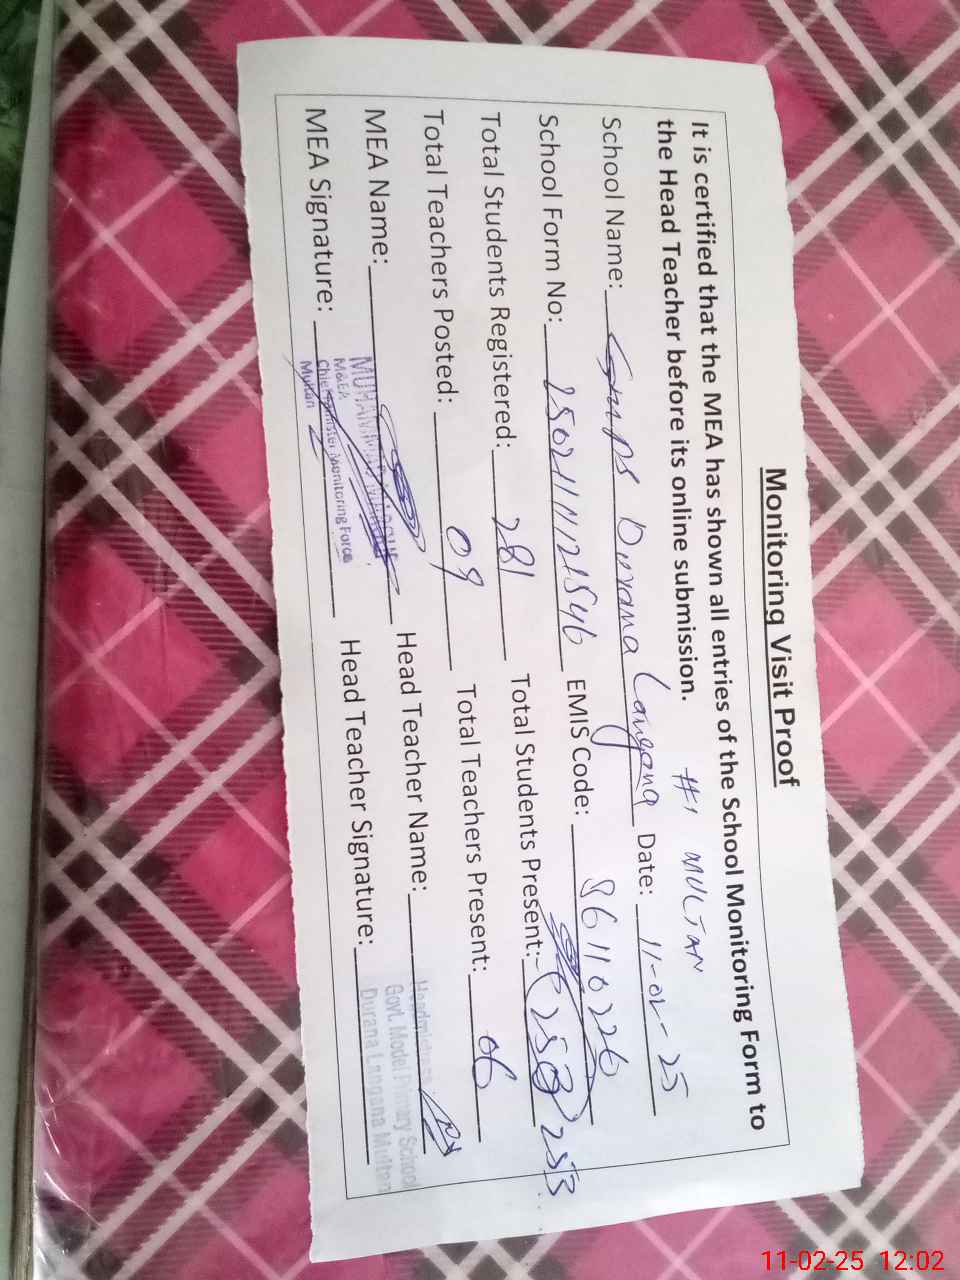 Monitoring Visit Proof
It is certified that the MEA has shown all entries of the School Monitoring Form to
the Head Teacher before its online submission. #1 MULTAN
School Name: GMPS Durana Langana Date: 11-02-25
School Form No: EMIS Code:
Total Students Registered: 281 Total Students Present: 253
Total Teachers Posted: 09 Total Teachers Present: 06
MEA Name: Head Teacher Name:
MEA Signature: Head Teacher Signature:
M&EA
Chief Minister Monitoring Force
Multan
Headmistress
Govt. Model Primary School
Durana Langana Multan
11-02-25 12:02